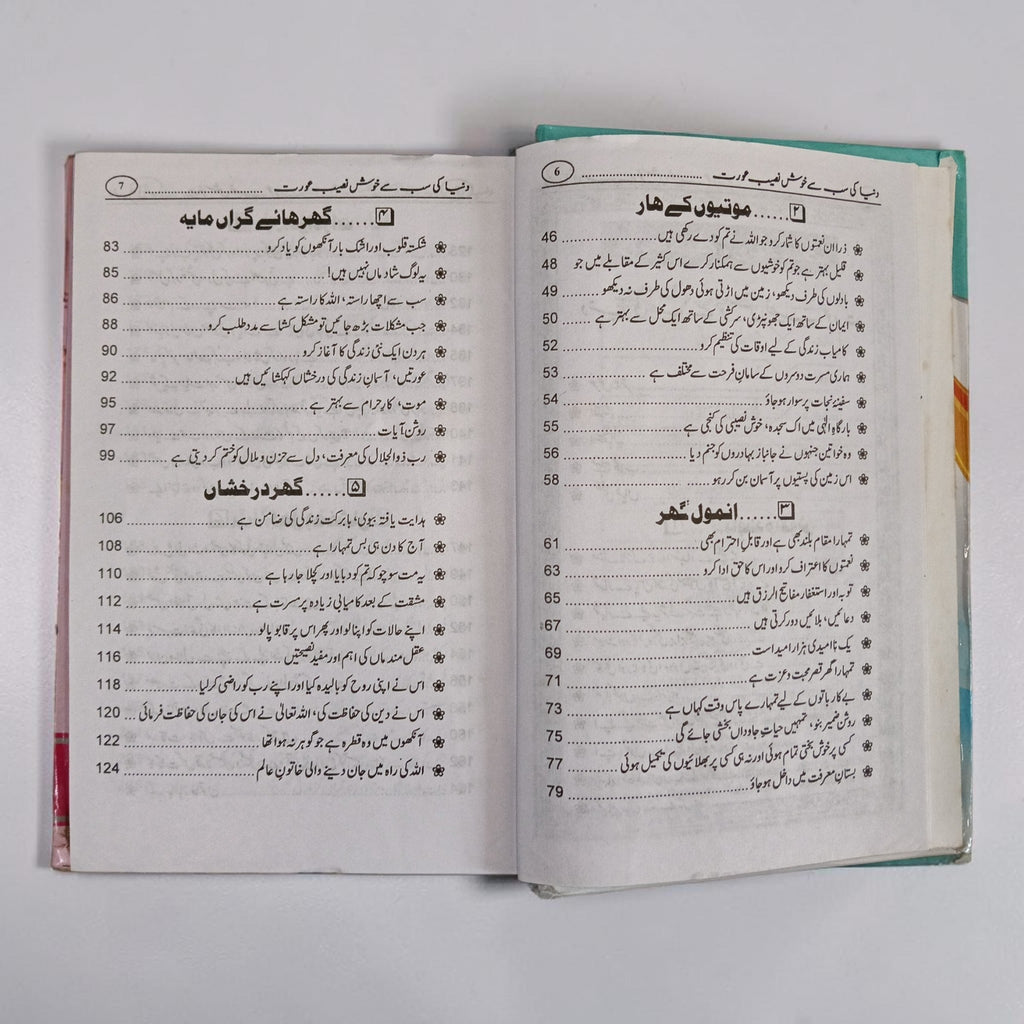 دنیا کی سب سے خوش نصیب عورت ................ 6
۲ ...... موتیوں کے ہار
ذرا ان نعمتوں کا شمار کرو جو اللہ نے تم کو دے رکھی ہیں ................ 46
قلیل بہتر ہے جو تم کو خوشیوں سے ہمکنار کرے اس کثیر کے مقابلے میں جو 48
بادلوں کی طرف دیکھو، زمین میں اڑتی ہوئی دھول کی طرف نہ دیکھو ................ 49
ایمان کے ساتھ ایک جھونپڑی، سرکشی کے ساتھ ایک محل سے بہتر ہے ................ 50
کامیاب زندگی کے لیے اوقات کی تنظیم کرو ................ 52
ہماری مسرت دوسروں کے سامانِ فرحت سے مختلف ہے ................ 53
سفینۂ نجات پر سوار ہو جاؤ ................ 54
بارگاہِ الٰہی میں اک سجدہ، خوش نصیبی کی کنجی ہے ................ 55
وہ خواتین جنہوں نے جانباز بہادروں کو جنم دیا ................ 56
اس زمین کی پستیوں پر آسمان بن کر رہو ................ 58
۳ ...... انمول گہر
تمہارا مقام بلند بھی ہے اور قابلِ احترام بھی ................ 61
نعمتوں کا اعتراف کرو اور اس کا حق ادا کرو ................ 63
توبہ اور استغفار مفاتیح الرزق ہیں ................ 65
دعائیں، بلائیں دور کرتی ہیں ................ 67
یک ناامیدی ہزار امید است ................ 69
تمہارا گھر قصرِ محبت و عزت ہے ................ 71
بے کار باتوں کے لیے تمہارے پاس وقت کہاں ہے ................ 73
روشن ضمیر بنو، تمہیں حیاتِ جاوداں بخشی جائے گی ................ 75
کسی پر خوش بختی تمام ہوئی اور نہ ہی کسی پر بھلائیوں کی تکمیل ہوئی ................ 77
بستانِ معرفت میں داخل ہو جاؤ ................ 79
دنیا کی سب سے خوش نصیب عورت ................ 7
۴ ...... گہرہائے گراں مایہ
شکستہ قلوب اور اشک بار آنکھوں کو یاد کرو ................ 83
یہ لوگ شادماں نہیں ہیں! ................ 85
سب سے اچھا راستہ، اللہ کا راستہ ہے ................ 86
جب مشکلات بڑھ جائیں تو مشکل کشا سے مدد طلب کرو ................ 88
ہر دن ایک نئی زندگی کا آغاز کرو ................ 90
عورتیں، آسمانِ زندگی کی درخشاں کہکشائیں ہیں ................ 92
موت، کارِ حرام سے بہتر ہے ................ 95
روشن آیات ................ 97
رب ذوالجلال کی معرفت، دل سے حزن و ملال کو ختم کر دیتی ہے ................ 99
۵ ...... گہر درخشاں
ہدایت یافتہ بیوی، بابرکت زندگی کی ضامن ہے ................ 106
آج کا دن ہی بس تمہارا ہے ................ 108
یہ مت سوچو کہ تم کو دبایا اور کچلا جا رہا ہے ................ 110
مشقت کے بعد کامیابی زیادہ پر مسرت ہے ................ 112
اپنے حالات کو اپنا لو اور پھر اس پر قابو پا لو ................ 114
عقل مند ماں کی اہم اور مفید نصیحتیں ................ 116
اس نے اپنی روح کو بالیدہ کیا اور اپنے رب کو راضی کر لیا ................ 118
اس نے دین کی حفاظت کی، اللہ تعالیٰ نے اس کی جان کی حفاظت فرمائی .... 120
آنکھوں میں وہ قطرہ ہے جو گوہر نہ ہوا تھا ................ 122
اللہ کی راہ میں جان دینے والی خاتونِ عالم ................ 124